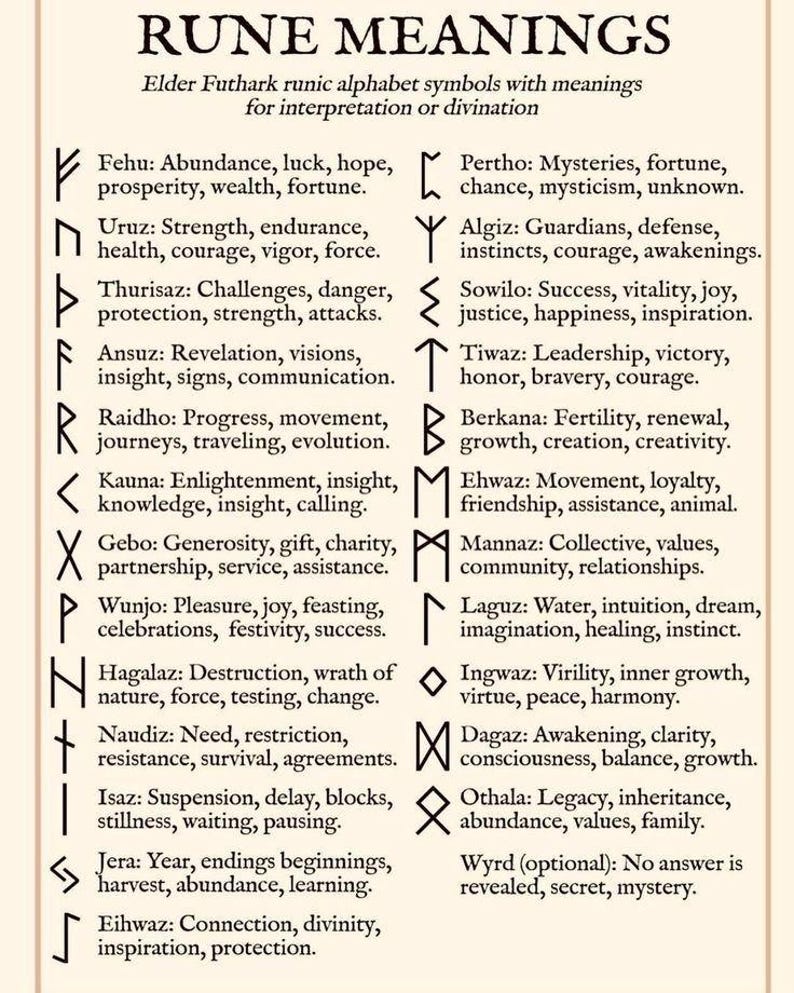 RUNE MEANINGS
Elder Futhark runic alphabet symbols with meanings
for interpretation or divination
ᚠ Fehu: Abundance, luck, hope,
prosperity, wealth, fortune.
ᚢ Uruz: Strength, endurance,
health, courage, vigor, force.
ᚦ Thurisaz: Challenges, danger,
protection, strength, attacks.
ᚨ Ansuz: Revelation, visions,
insight, signs, communication.
ᚱ Raidho: Progress, movement,
journeys, traveling, evolution.
ᚲ Kauna: Enlightenment, insight,
knowledge, insight, calling.
ᚷ Gebo: Generosity, gift, charity,
partnership, service, assistance.
ᚹ Wunjo: Pleasure, joy, feasting,
celebrations, festivity, success.
ᚺ Hagalaz: Destruction, wrath of
nature, force, testing, change.
ᚾ Naudiz: Need, restriction,
resistance, survival, agreements.
ᛁ Isaz: Suspension, delay, blocks,
stillness, waiting, pausing.
ᛃ Jera: Year, endings beginnings,
harvest, abundance, learning.
ᛇ Eihwaz: Connection, divinity,
inspiration, protection.
ᛈ Pertho: Mysteries, fortune,
chance, mysticism, unknown.
ᛉ Algiz: Guardians, defense,
instincts, courage, awakenings.
ᛊ Sowilo: Success, vitality, joy,
justice, happiness, inspiration.
ᛏ Tiwaz: Leadership, victory,
honor, bravery, courage.
ᛒ Berkana: Fertility, renewal,
growth, creation, creativity.
ᛖ Ehwaz: Movement, loyalty,
friendship, assistance, animal.
ᛗ Mannaz: Collective, values,
community, relationships.
ᛚ Laguz: Water, intuition, dream,
imagination, healing, instinct.
ᛜ Ingwaz: Virility, inner growth,
virtue, peace, harmony.
ᛞ Dagaz: Awakening, clarity,
consciousness, balance, growth.
ᛟ Othala: Legacy, inheritance,
abundance, values, family.
Wyrd (optional): No answer is
revealed, secret, mystery.